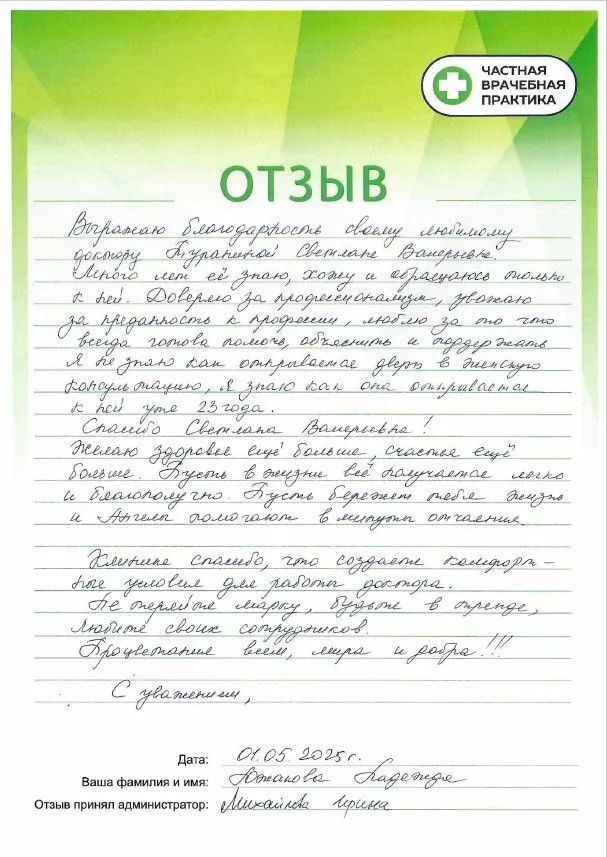 ЧАСТНАЯ
ВРАЧЕБНАЯ
ПРАКТИКА
ОТЗЫВ
Выражаю благодарность своему любимому
доктору Тураниной Светлане Валерьевне.
Много лет её знаю, хожу и обращаюсь только
к ней. Доверяю за профессионализм, уважаю
за преданность к профессии, люблю за то что
всегда готова помочь, объяснить и поддержать
Я не знаю как открывается дверь в женскую
консультацию, Я знаю как она открывается
к ней уже 23 года.
Спасибо Светлана Валерьевна!
Желаю здоровье ещё больше, счастье ещё
больше. Пусть в жизни всё получается легко
и благополучно. Пусть бережет тебя жизнь
и Ангелы помогают в минуты отчаяния.
Клинике спасибо, что создаете комфорт-
ные условия для работы доктора.
Не теряйте марку, будьте в тренде,
любите своих сотрудников.
Процветания всем, мира и добра!!!
С уважением,
Дата: 01.05.2025 г.
Ваша фамилия и имя: Южакова Надежда
Отзыв принял администратор: Михайлова Ирина